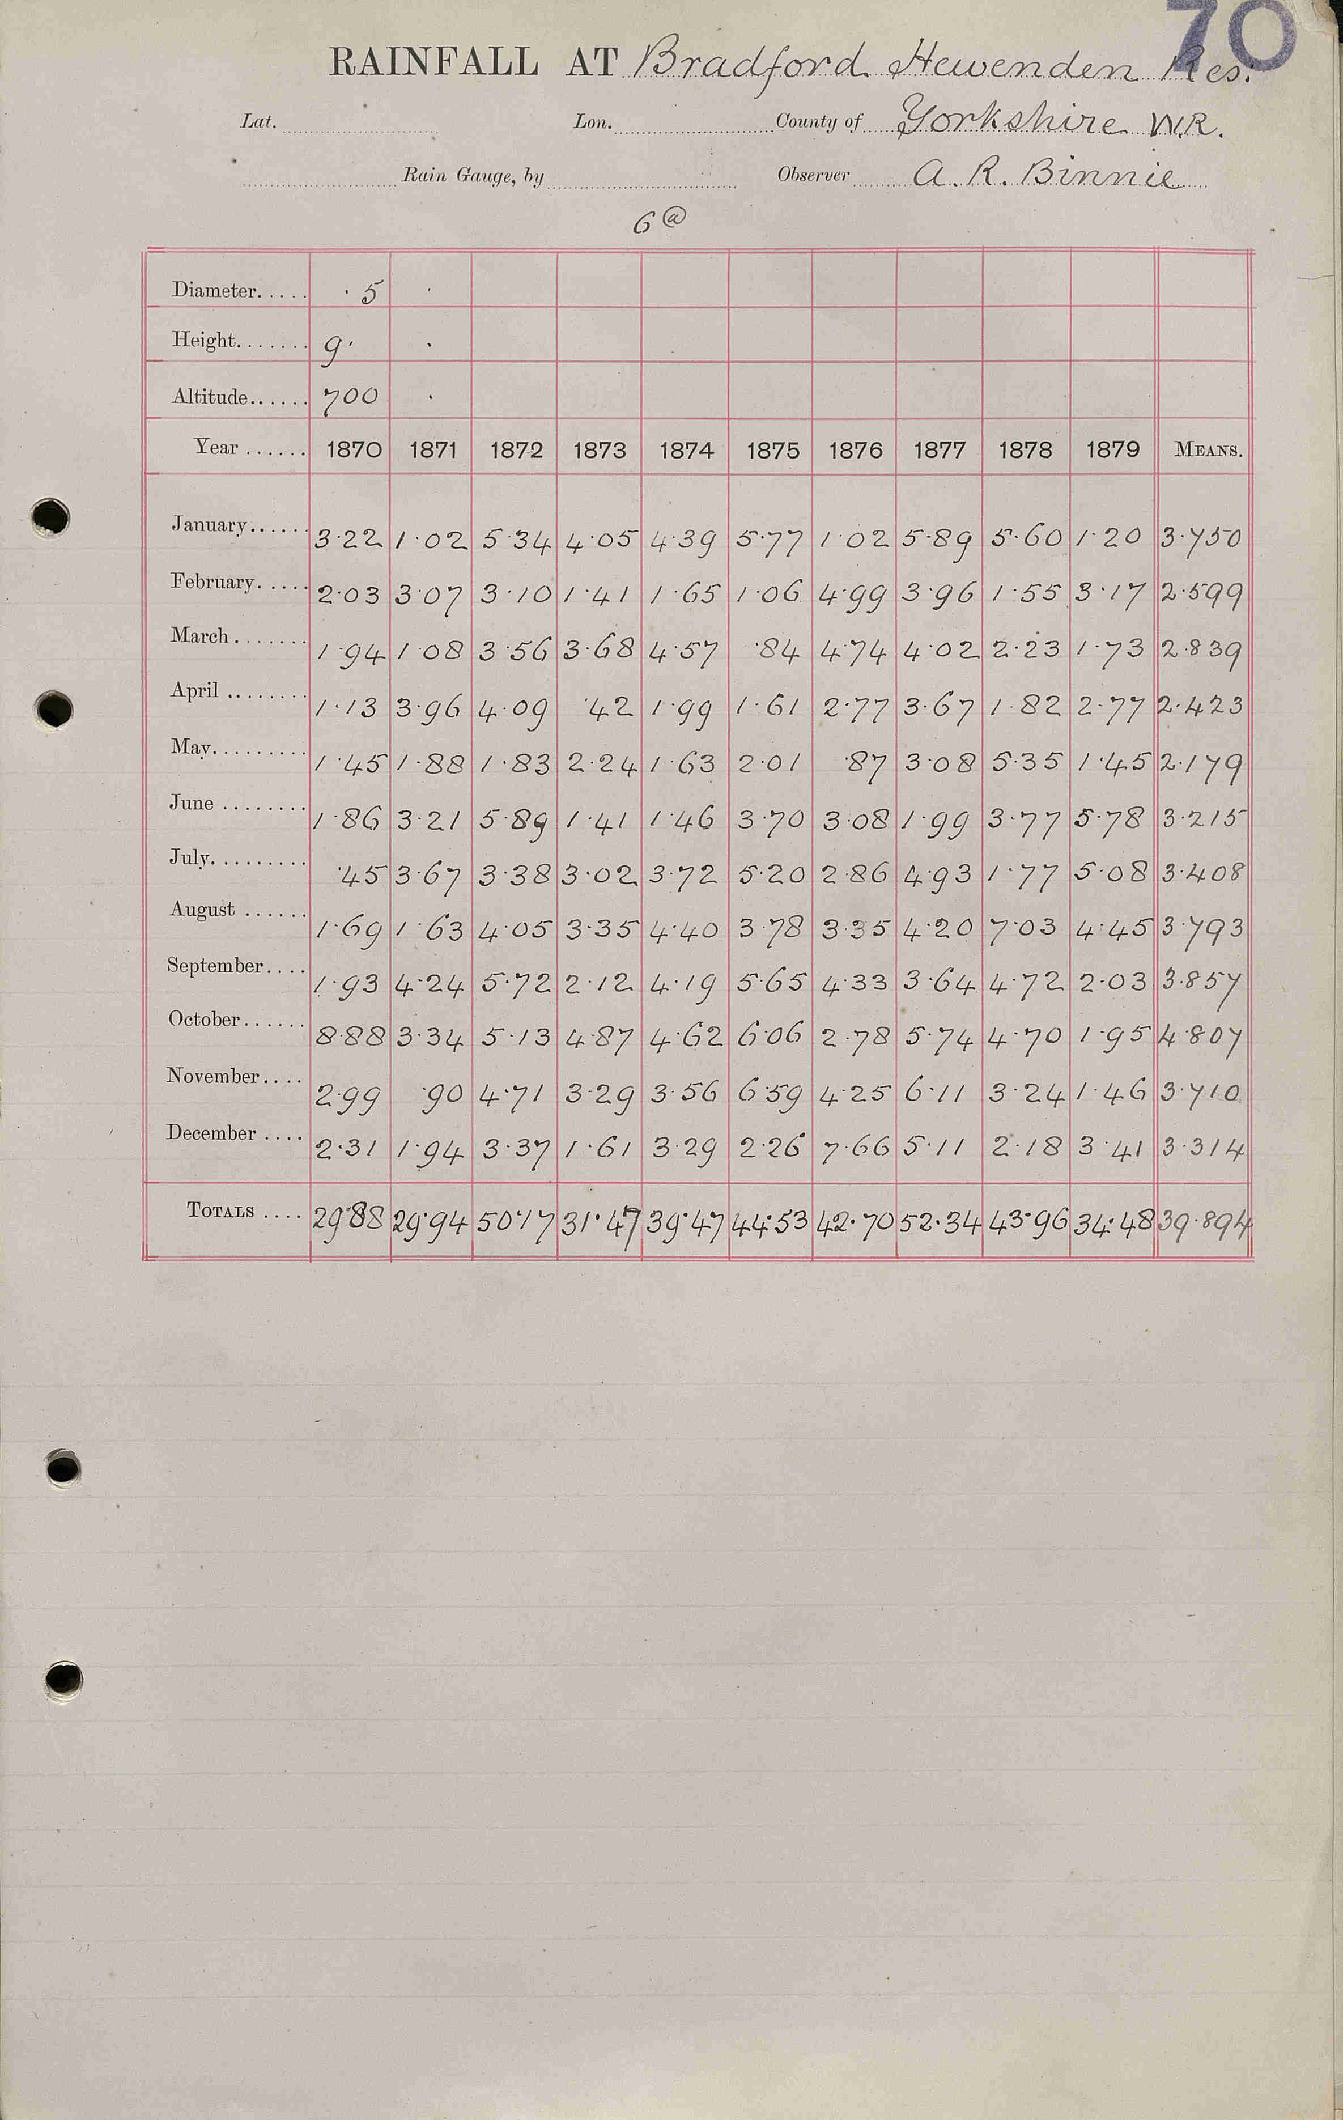 70
RAINFALL AT Bradford Hewenden Res.
Lat. Lon. County of Yorkshire W.R.
Rain Gauge, by Observer A. R. Binnie
6 @
Diameter..... ·5 ·
Height....... 9· ·
Altitude...... 700 ·
Year ...... 1870 1871 1872 1873 1874 1875 1876 1877 1878 1879 MEANS.
January...... 3·22 1·02 5·34 4·05 4·39 5·77 1·02 5·89 5·60 1·20 3·750
February..... 2·03 3·07 3·10 1·41 1·65 1·06 4·99 3·96 1·55 3·17 2·599
March ....... 1·94 1·08 3·56 3·68 4·57 ·84 4·74 4·02 2·23 1·73 2·839
April ........ 1·13 3·96 4·09 ·42 1·99 1·61 2·77 3·67 1·82 2·77 2·423
May......... 1·45 1·88 1·83 2·24 1·63 2·01 ·87 3·08 5·35 1·45 2·179
June ........ 1·86 3·21 5·89 1·41 1·46 3·70 3·08 1·99 3·77 5·78 3·215
July......... ·45 3·67 3·38 3·02 3·72 5·20 2·86 4·93 1·77 5·08 3·408
August ...... 1·69 1·63 4·05 3·35 4·40 3·78 3·35 4·20 7·03 4·45 3·793
September.... 1·93 4·24 5·72 2·12 4·19 5·65 4·33 3·64 4·72 2·03 3·857
October...... 8·88 3·34 5·13 4·87 4·62 6·06 2·78 5·74 4·70 1·95 4·807
November.... 2·99 ·90 4·71 3·29 3·56 6·59 4·25 6·11 3·24 1·46 3·710
December .... 2·31 1·94 3·37 1·61 3·29 2·26 7·66 5·11 2·18 3·41 3·314
TOTALS .... 29·88 29·94 50·17 31·47 39·47 44·53 42·70 52·34 43·96 34·48 39·894